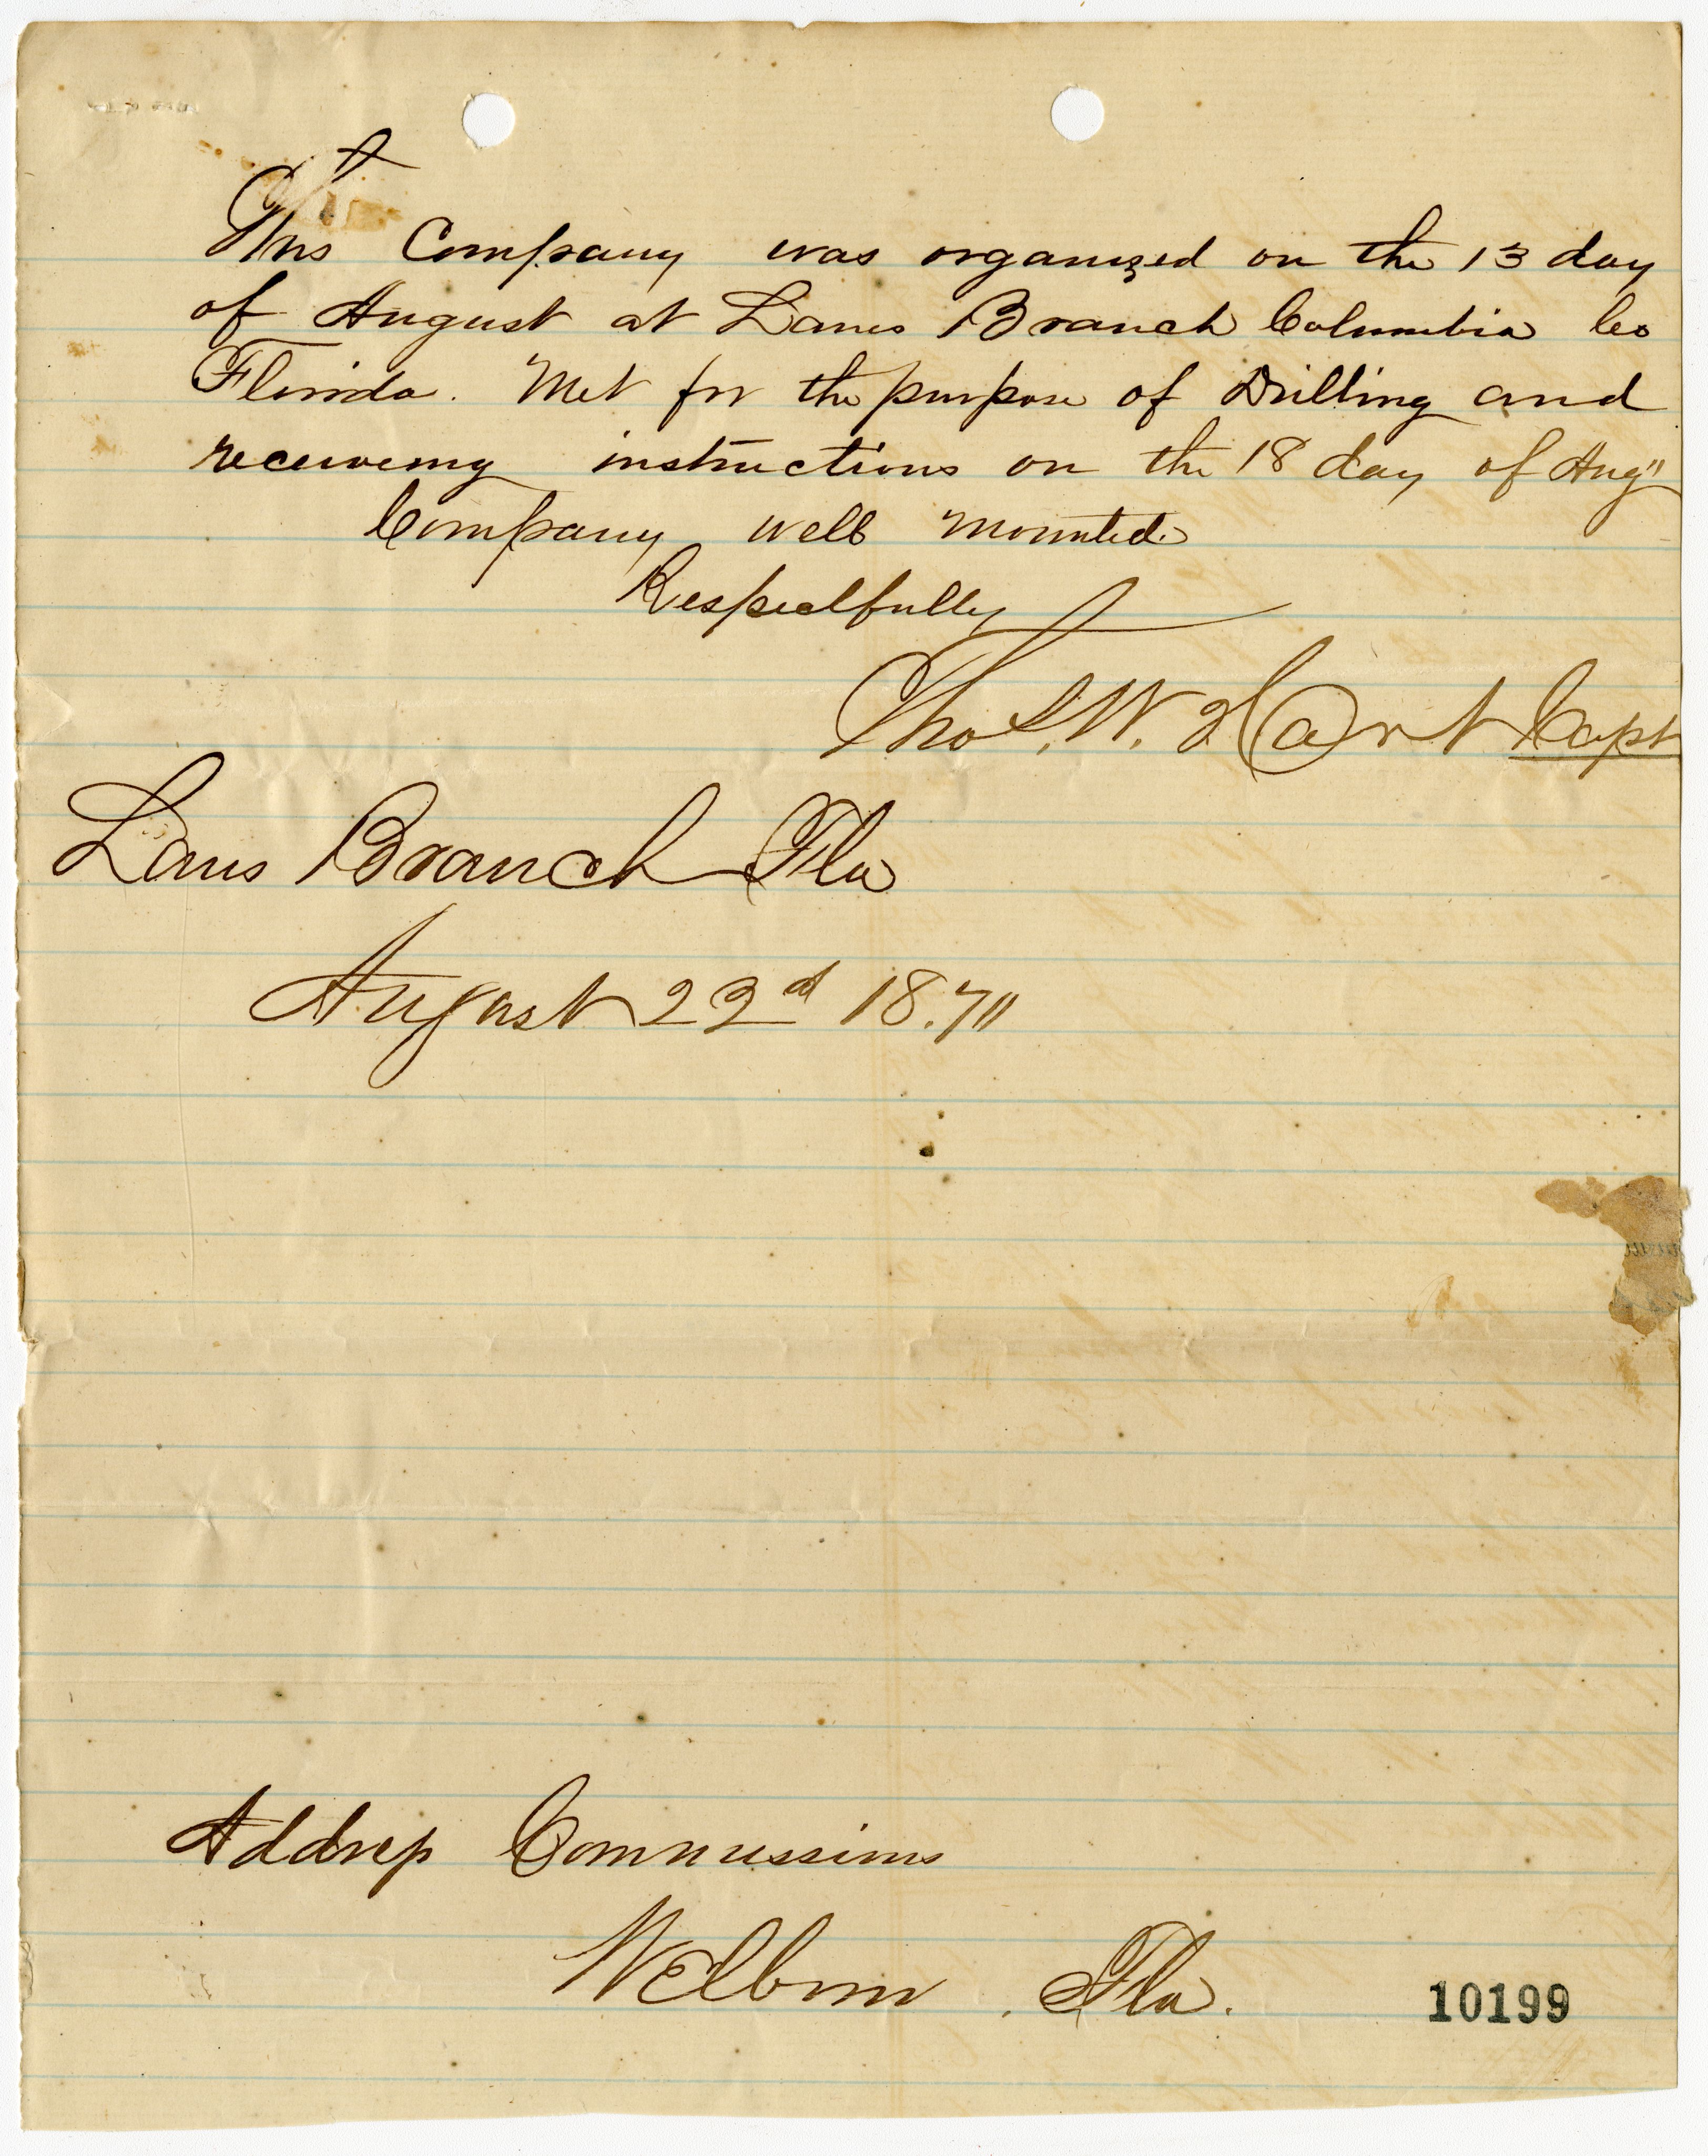 This Company was organized on the 13 day
of August at Lanes Branch Columbia Co
Florida. Met for the purpose of Drilling and
receiveing instructions on the 18 day of Aug"
Company well mounted.
Respectfully
Thos. W. Hart Capt
Lanes Branch Fla
August 22d 18.70
Address Commissions
Welborn, Fla.
10199